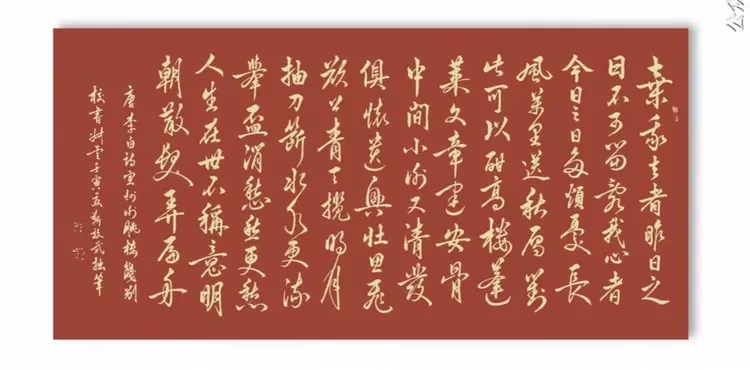 棄我去者昨日之
日不可留亂我心者
今日之日多煩憂長
風萬里送秋雁對
此可以酣高樓蓬
萊文章建安骨
中間小謝又清發
俱懷逸興壯思飛
欲上青天攬明月
抽刀斷水水更流
舉盃消愁愁更愁
人生在世不稱意明
朝散髮弄扁舟
唐李白詩宣州謝朓樓餞別
校書叔雲壬寅夏武拙筆